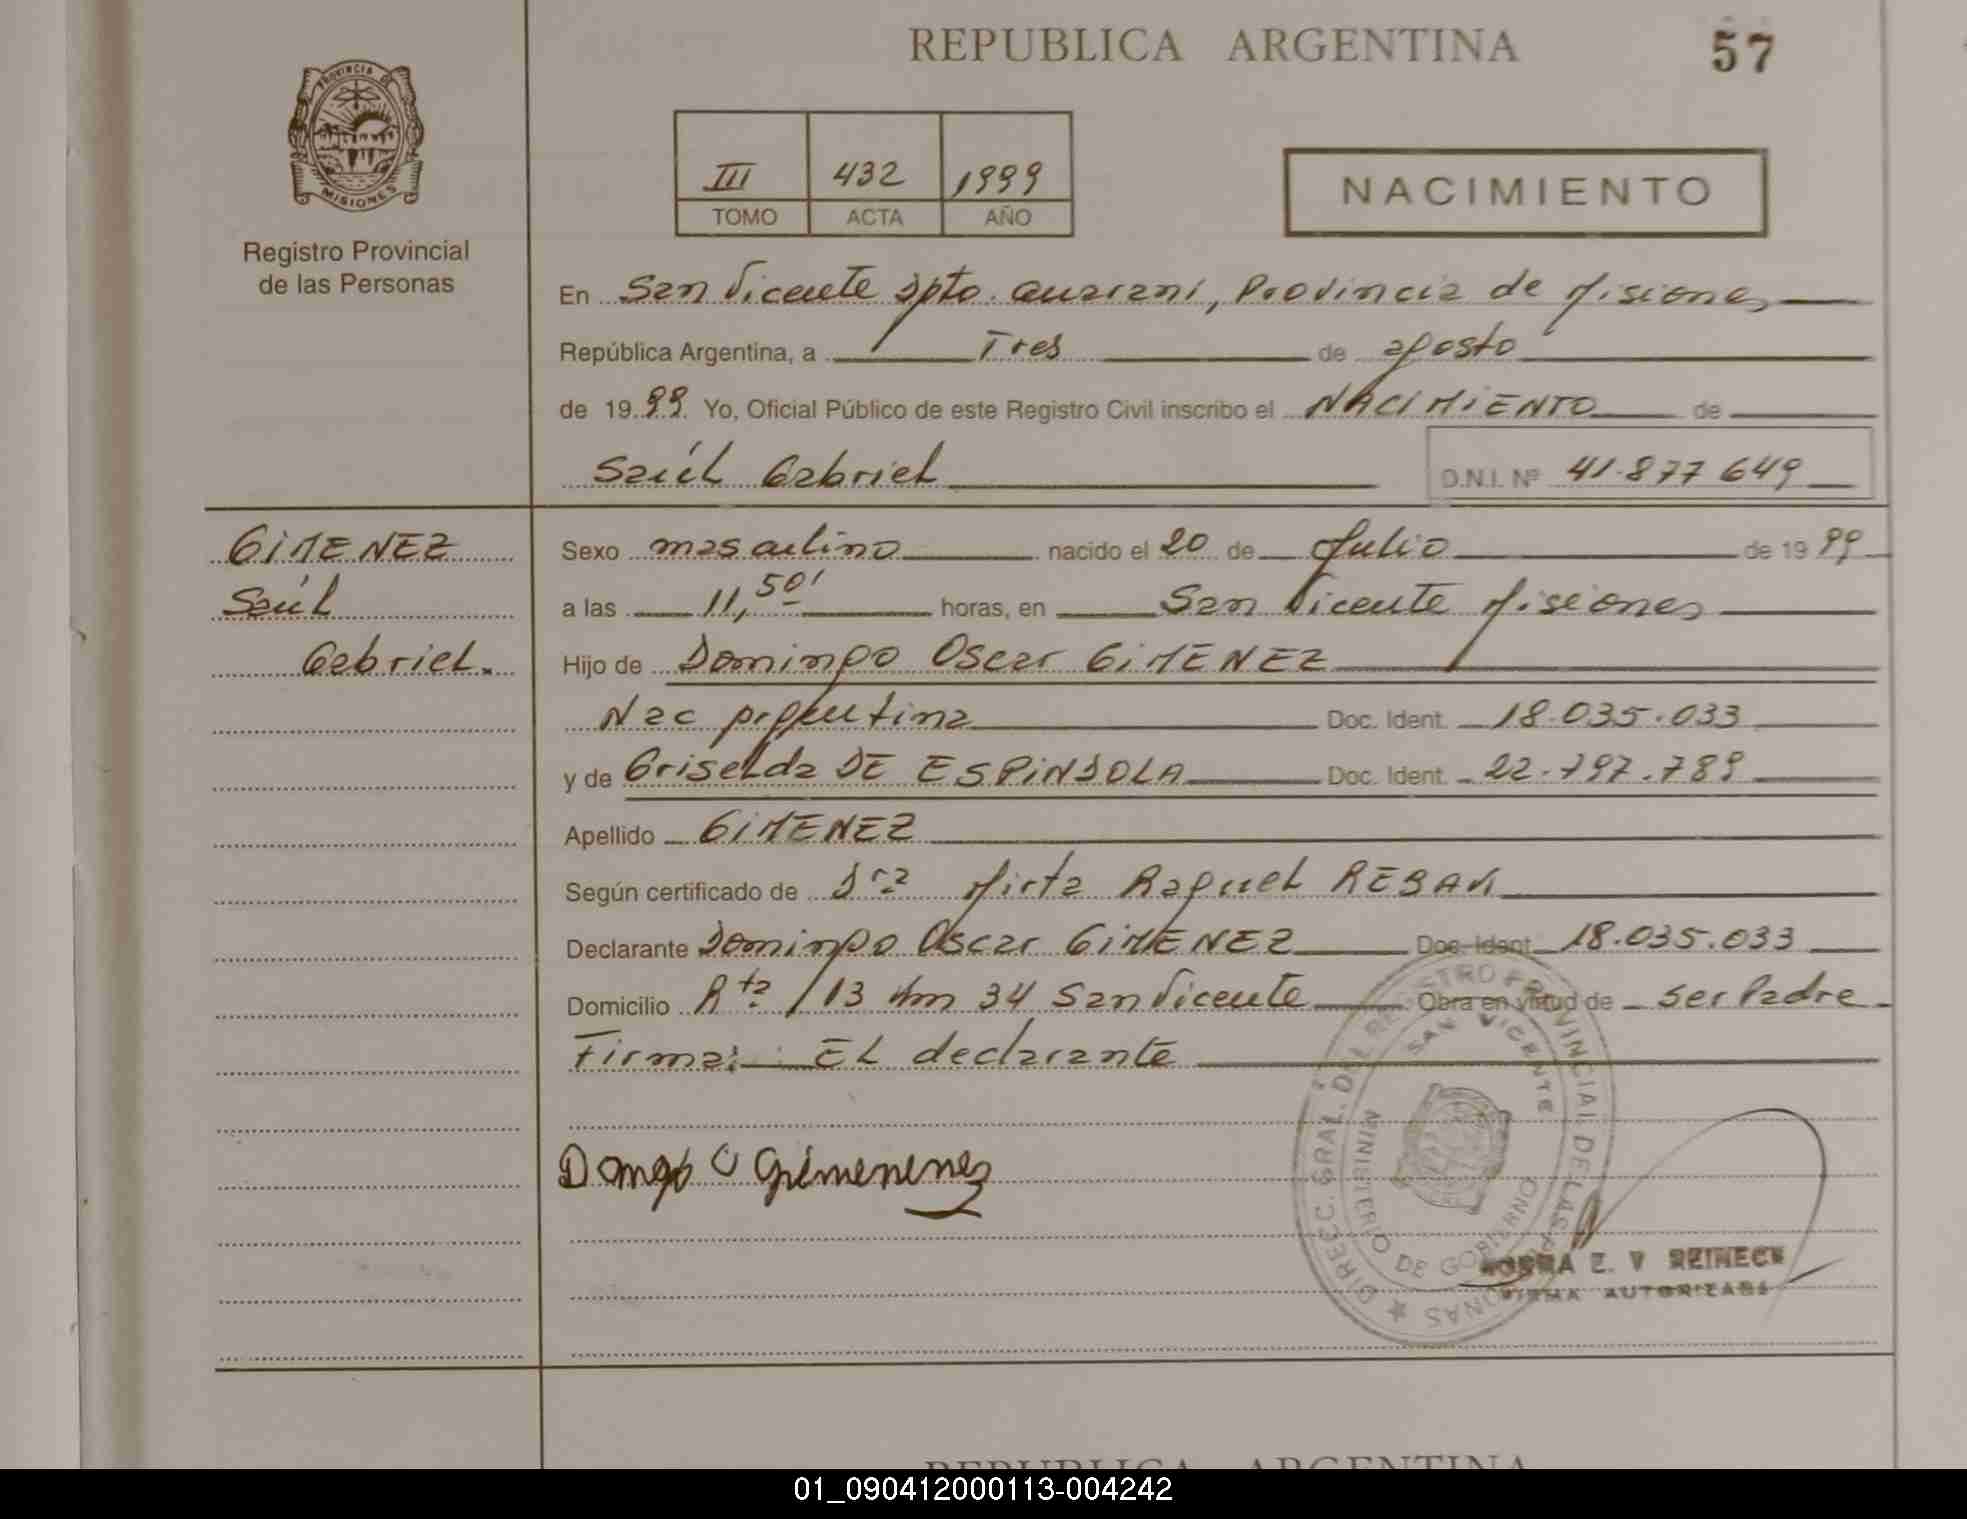 REPUBLICA ARGENTINA
57
PROVINCIA DE
MISIONES
Registro Provincial
de las Personas
III 432 1999
TOMO ACTA AÑO
NACIMIENTO
En San Vicente Dpto. Guarani, Provincia de Misiones
República Argentina, a Tres de agosto
de 1999 Yo, Oficial Público de este Registro Civil inscribo el NACIMIENTO de
Saúl Gabriel
D.N.I. Nº 41.877 649
GIMENEZ
Saúl
Gabriel.
Sexo masculino nacido el 20 de Julio de 1999
a las 11,50' horas, en San Vicente Misiones
Hijo de Domingo Oscar GIMENEZ
Nac argentina Doc. Ident. 18.035.033
y de Griselda DE ESPINDOLA Doc. Ident. 22.797.789
Apellido GIMENEZ
Según certificado de Dra Mirta Raquel
Declarante Domingo Oscar GIMENEZ Doc. Ident. 18.035.033
Domicilio Rta 13 Km 34 San Vicente Obra en virtud de ser Padre
Firma: EL declarante
DIRECC. GRAL. DEL REGISTRO PROVINCIAL DE LAS PERSONAS
SAN VICENTE
MINISTERIO DE GOBIERNO
O Gimenenez
E. V REINECK
FIRMA AUTORIZADA
REPUBLICA ARGENTINA
01_090412000113-004242